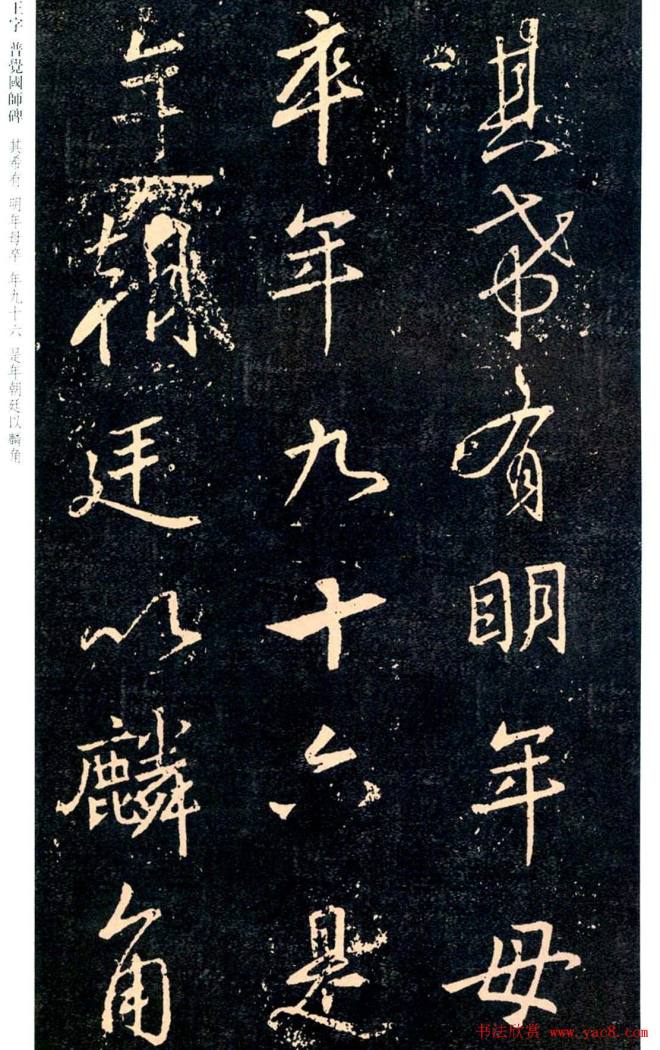 其希有明年母
卒年九十六是
年朝廷以麟角
王字 普覺國師碑 其希有 明年母卒 年九十六 是年朝廷以麟角
书法欣赏 www.yac8.com